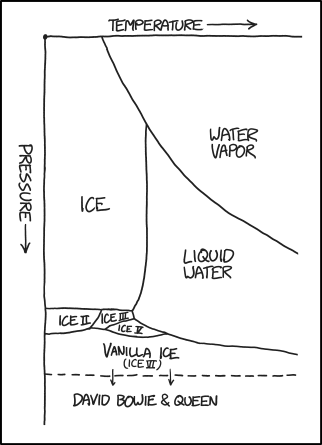 TEMPERATURE
PRESSURE
WATER
VAPOR
ICE
LIQUID
WATER
ICE II
ICE III
ICE V
VANILLA ICE
(ICE VI)
DAVID BOWIE & QUEEN